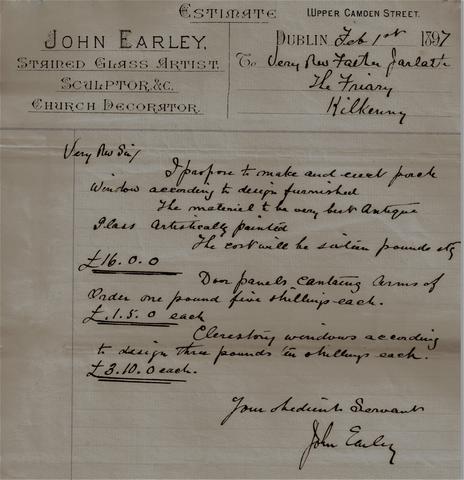 ESTIMATE
UPPER CAMDEN STREET.
JOHN EARLEY,
STAINED GLASS ARTIST.
SCULPTOR, &C.
CHURCH DECORATOR.
DUBLIN Feb 1st 1897
To Very Rev Father Jarlath
The Friary
Kilkenny
Very Rev Sir/
I propose to make and erect porch
window according to design furnished
The material to be very best Antique
Glass Artistically painted
The cost will be sixteen pounds stg
£16.0.0
Door panels containg Arms of
Order one pound five shillings each.
£.1.5.0 each
Clerestory windows according
to design three pounds ten shillings each.
£3.10.0 each.
Your obedient Servant
John Earley